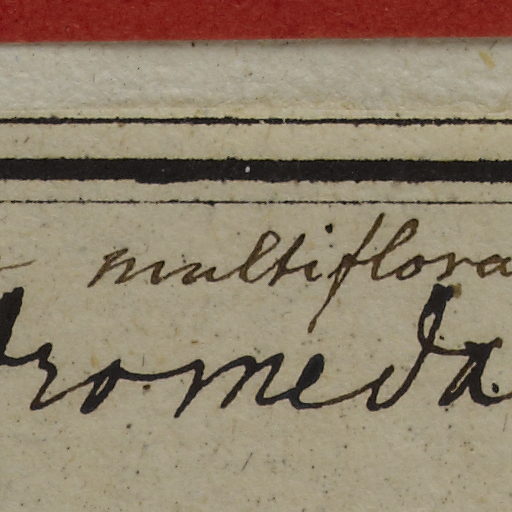 multiflora
dromeda